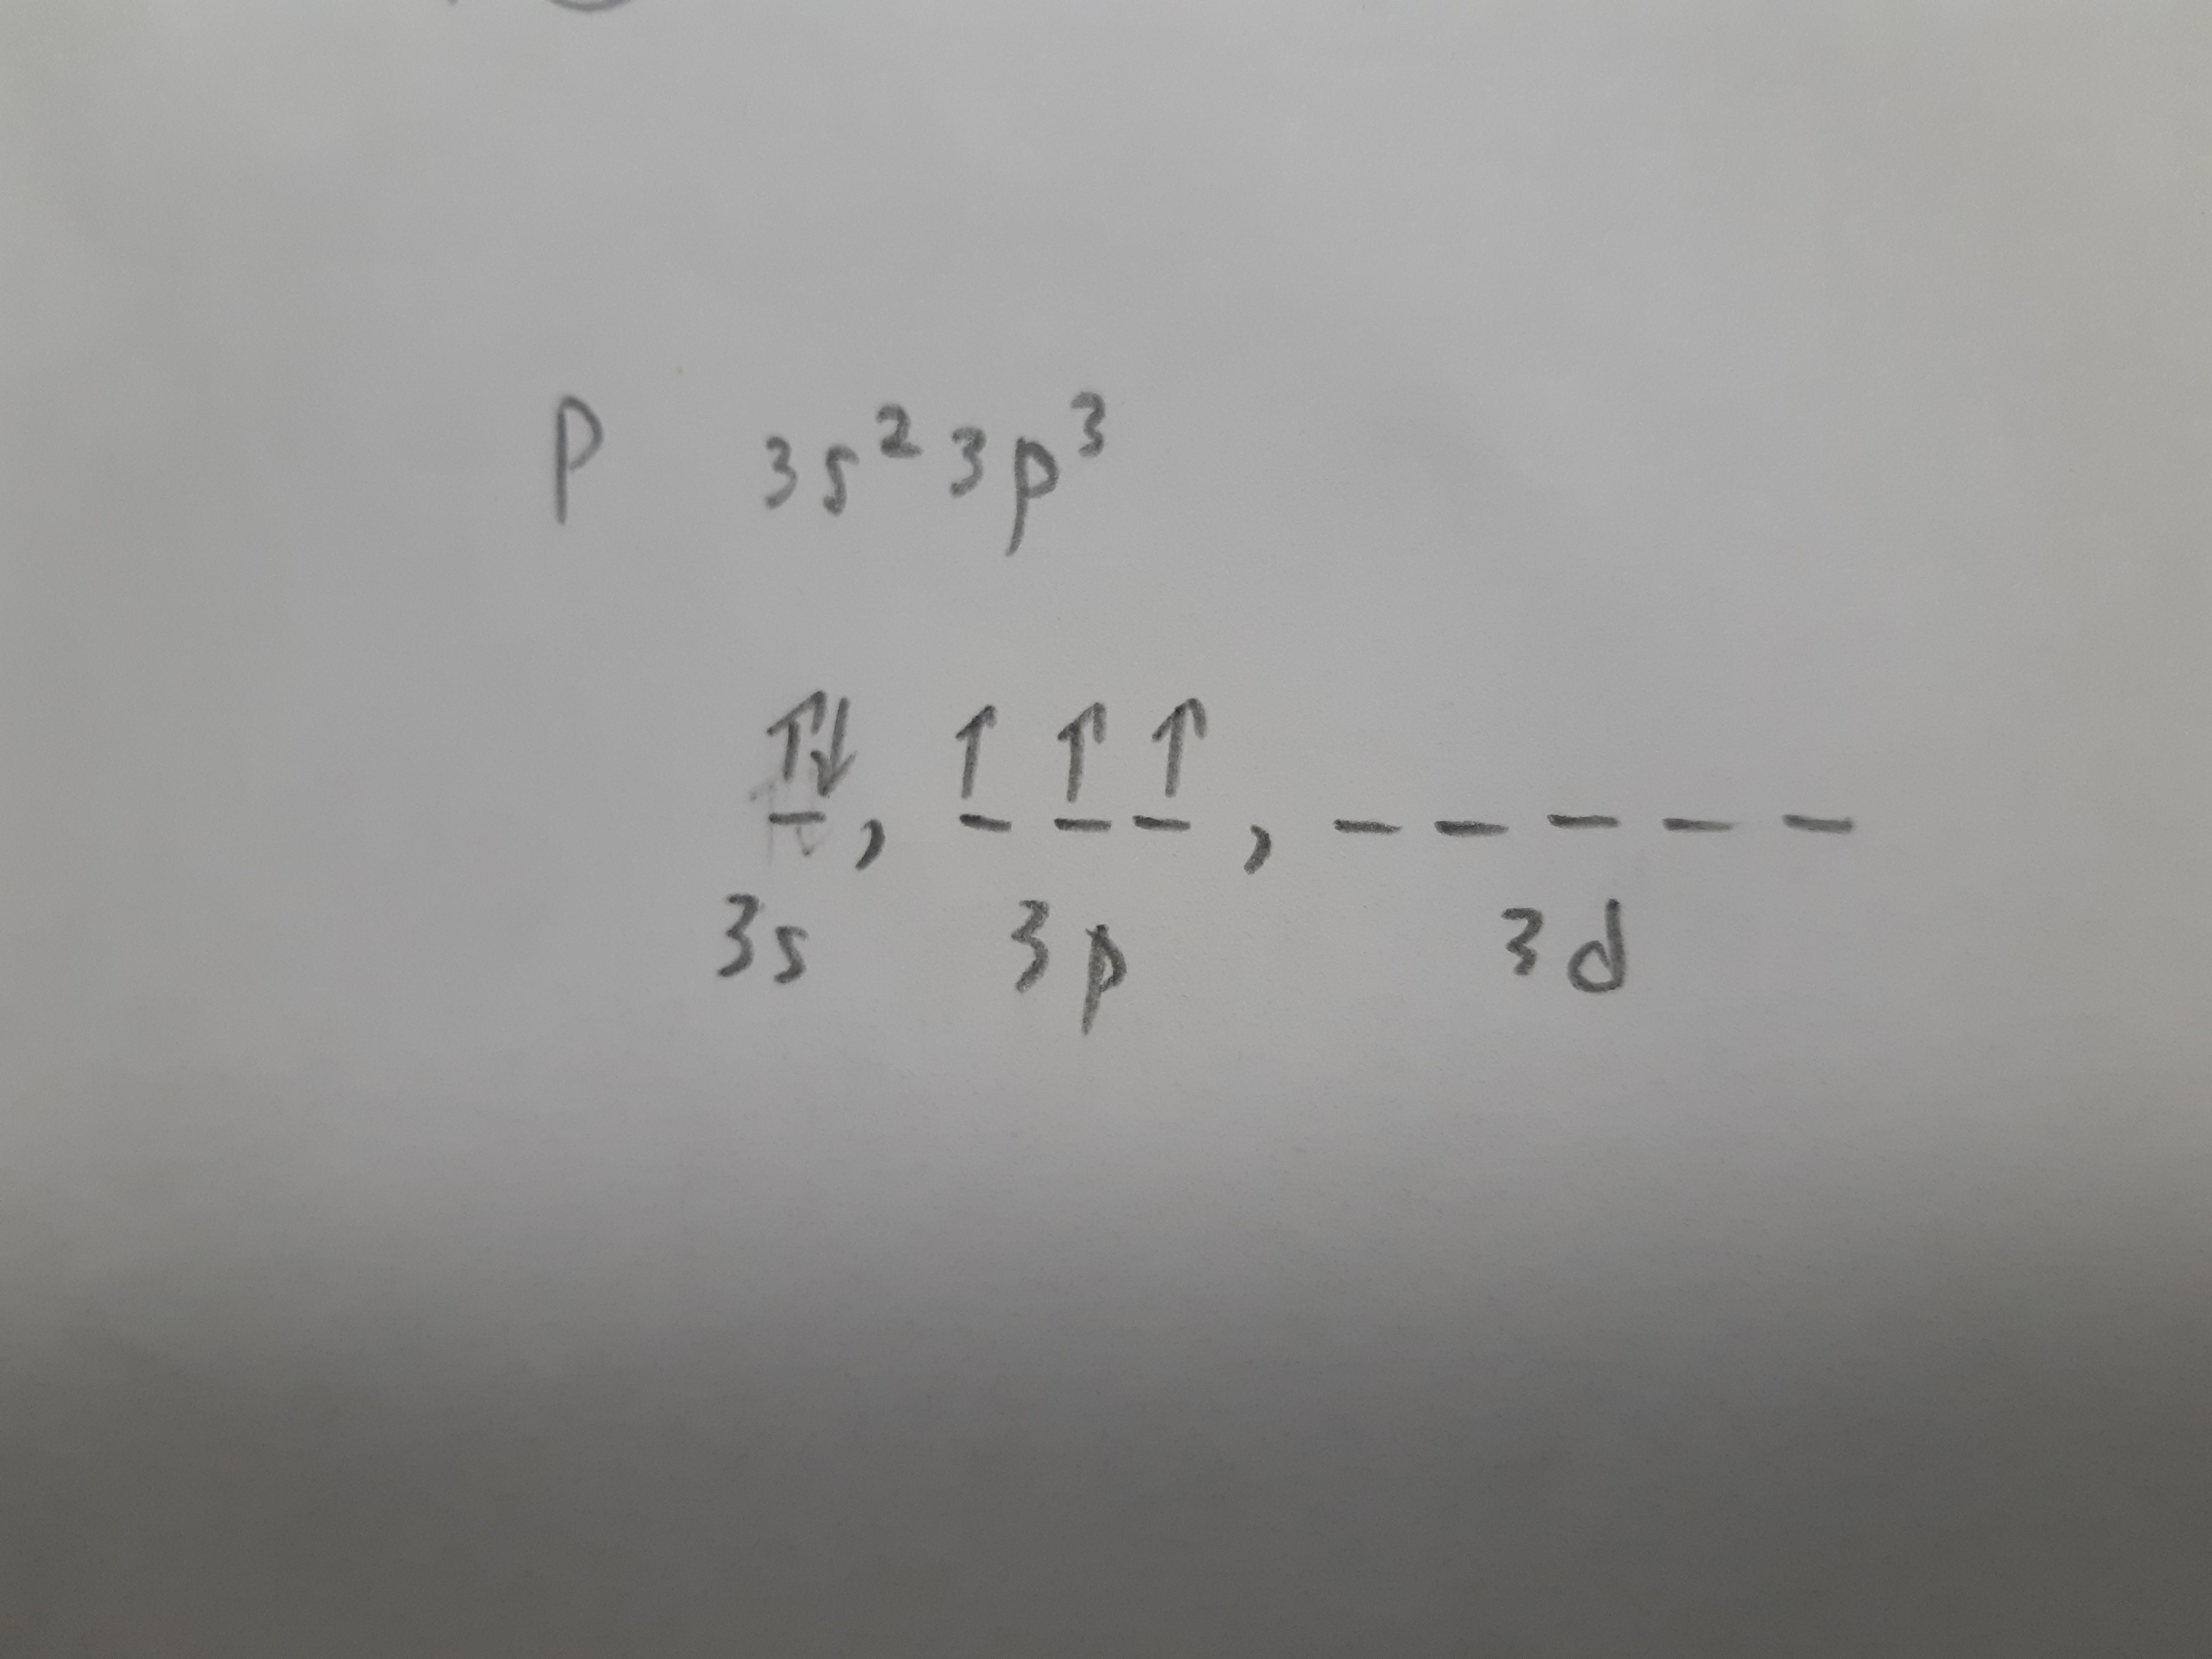 P 3s² 3p³
↑↓, ↑ ↑ ↑, _ _ _ _ _
3s 3p 3d